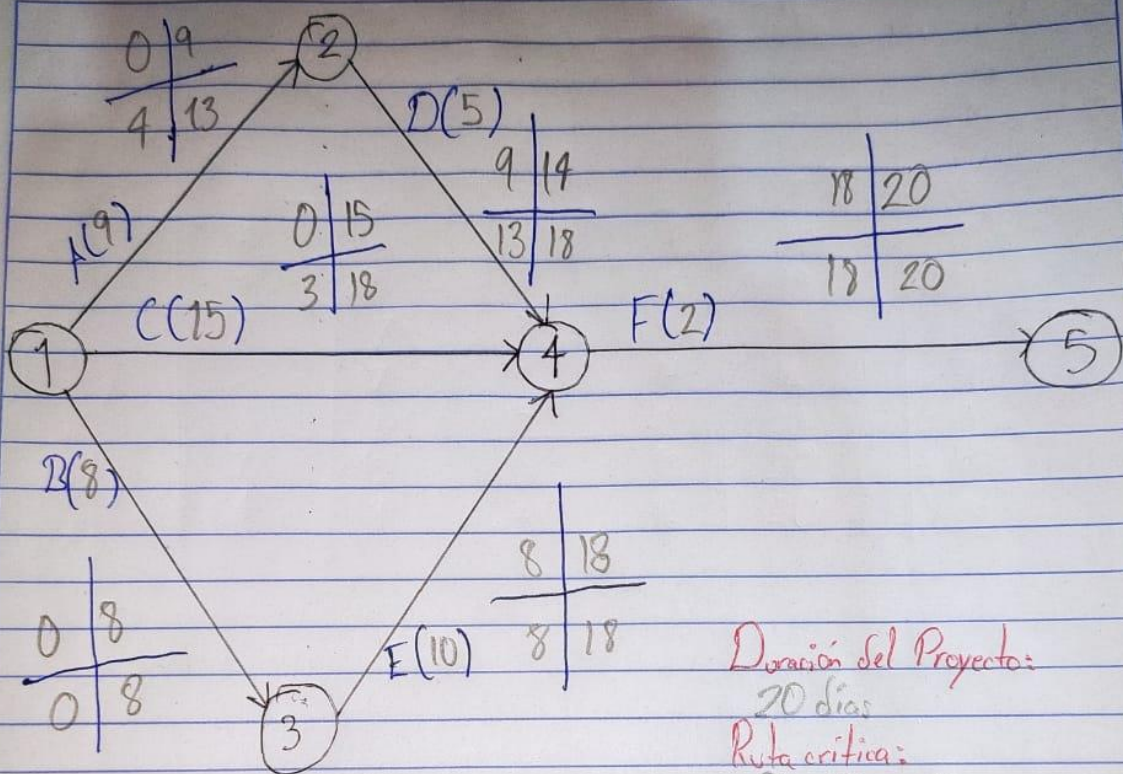 0 | 9
4 | 13
2
D(5)
9 | 14
13 | 18
A(9)
0 | 15
3 | 18
18 | 20
18 | 20
C(15)
F(2)
1
4
5
B(8)
8 | 18
8 | 18
0 | 8
0 | 8
E(10)
3
Duración del Proyecto:
20 días
Ruta crítica: